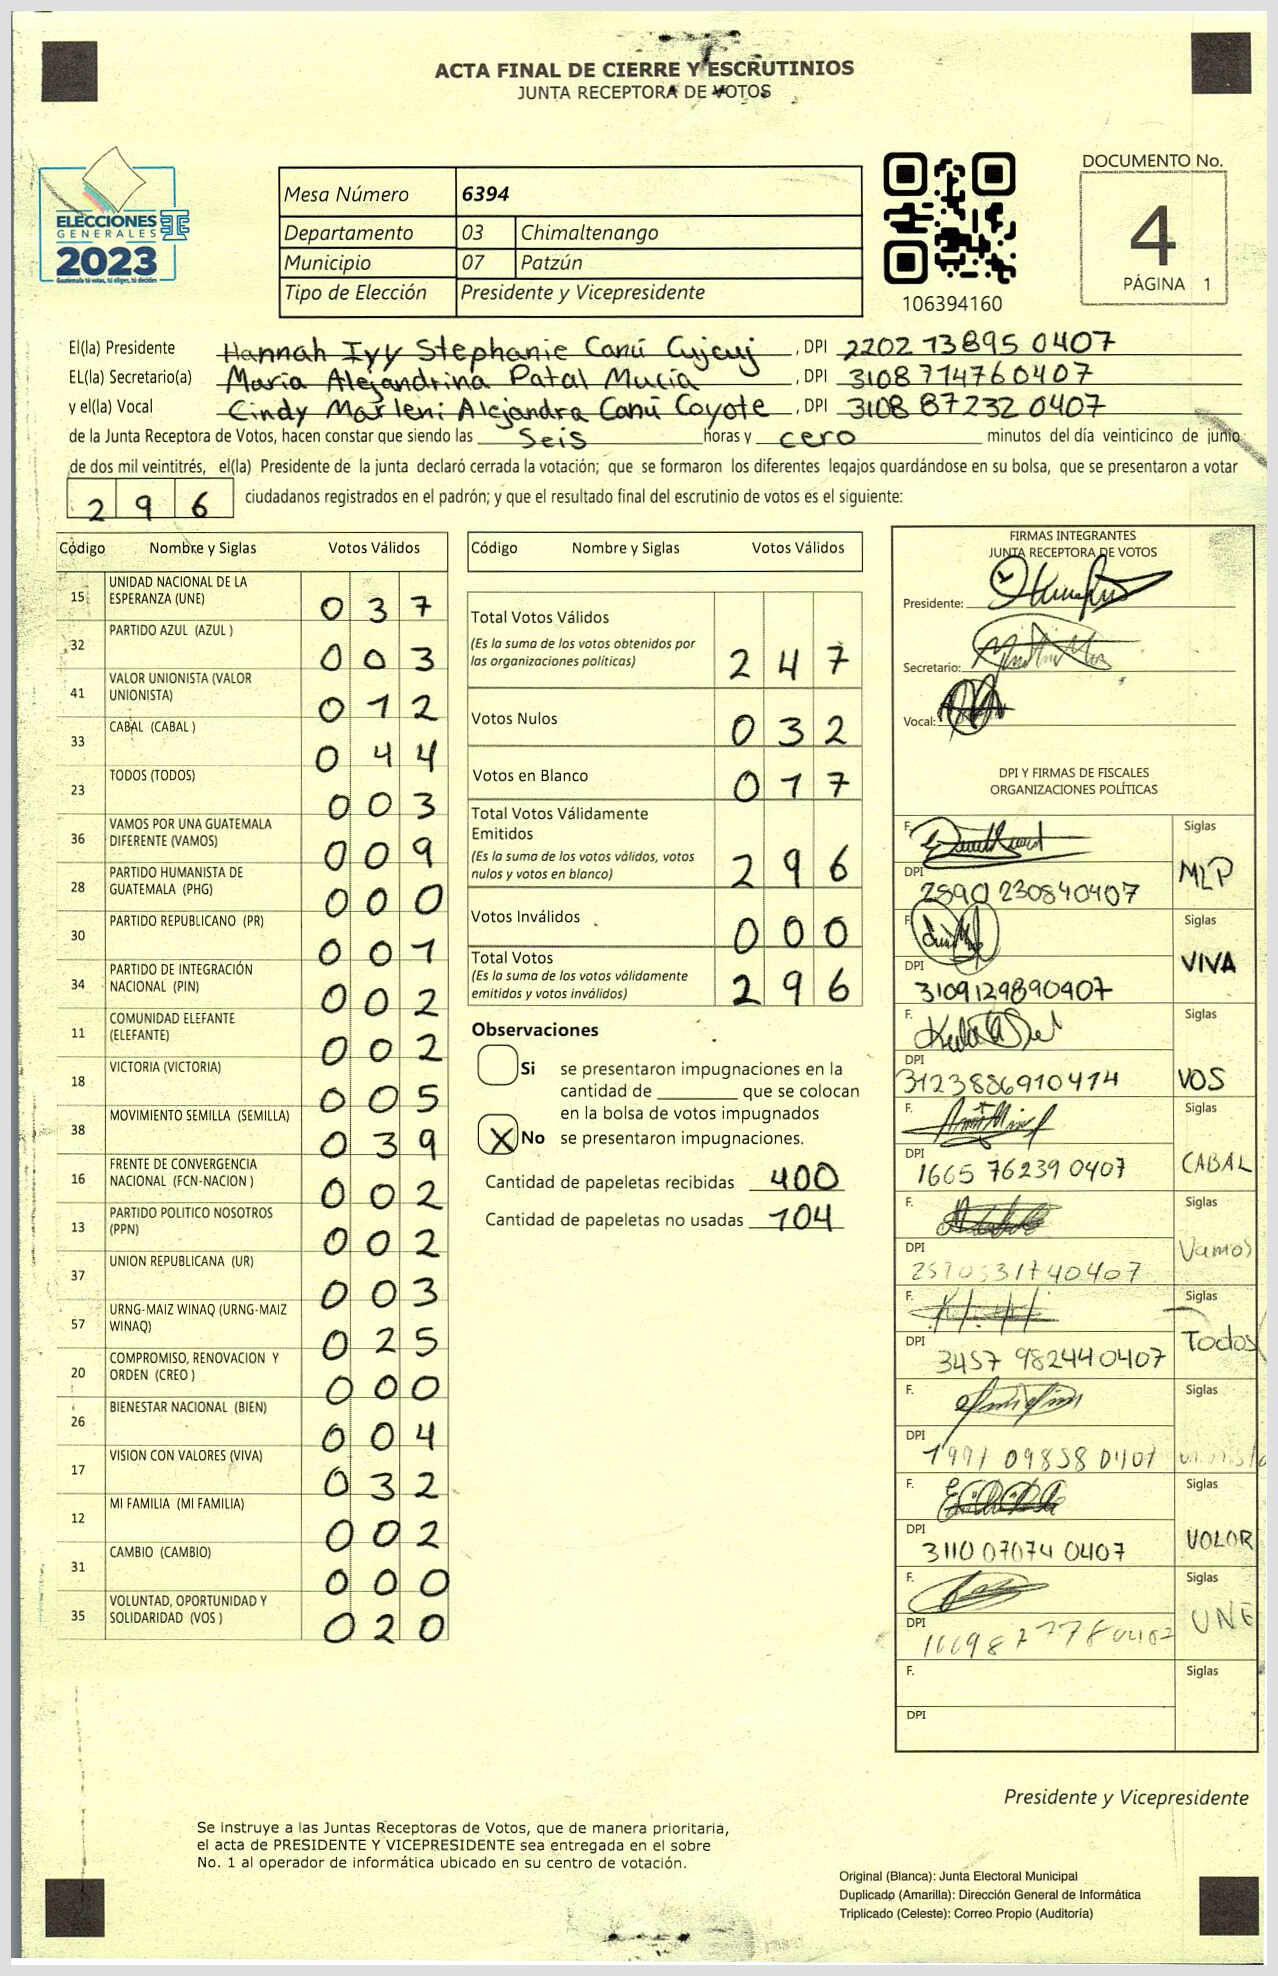 ACTA FINAL DE CIERRE Y ESCRUTINIOS
JUNTA RECEPTORA DE VOTOS
ELECCIONES
GENERALES
2023
Guatemala tú votas, tú eliges, tú decides
Mesa Número 6394
Departamento 03 Chimaltenango
Municipio 07 Patzún
Tipo de Elección Presidente y Vicepresidente
106394160
DOCUMENTO No.
4
PÁGINA 1
El(la) Presidente Hannah Ivy Stephanie Canú Cujcuj , DPI 2202 73895 0407
EL(la) Secretario(a) María Alejandrina Patal Mucía , DPI 3108 714760407
y el(la) Vocal Cindy Marleni Alejandra Canú Coyote , DPI 3108 87232 0407
de la Junta Receptora de Votos, hacen constar que siendo las Seis horas y cero minutos del día veinticinco de junio
de dos mil veintitrés, el(la) Presidente de la junta declaró cerrada la votación; que se formaron los diferentes legajos guardándose en su bolsa, que se presentaron a votar
296 ciudadanos registrados en el padrón; y que el resultado final del escrutinio de votos es el siguiente:
Código Nombre y Siglas Votos Válidos
15 UNIDAD NACIONAL DE LA
ESPERANZA (UNE) 037
32 PARTIDO AZUL (AZUL ) 003
41 VALOR UNIONISTA (VALOR
UNIONISTA) 012
33 CABAL (CABAL ) 044
23 TODOS (TODOS) 003
36 VAMOS POR UNA GUATEMALA
DIFERENTE (VAMOS) 009
28 PARTIDO HUMANISTA DE
GUATEMALA (PHG) 000
30 PARTIDO REPUBLICANO (PR) 001
34 PARTIDO DE INTEGRACIÓN
NACIONAL (PIN) 002
11 COMUNIDAD ELEFANTE
(ELEFANTE) 002
18 VICTORIA (VICTORIA) 005
38 MOVIMIENTO SEMILLA (SEMILLA) 039
16 FRENTE DE CONVERGENCIA
NACIONAL (FCN-NACION ) 002
13 PARTIDO POLITICO NOSOTROS
(PPN) 002
37 UNION REPUBLICANA (UR) 003
57 URNG-MAIZ WINAQ (URNG-MAIZ
WINAQ) 025
20 COMPROMISO, RENOVACION Y
ORDEN (CREO ) 000
26 BIENESTAR NACIONAL (BIEN) 004
17 VISION CON VALORES (VIVA) 032
12 MI FAMILIA (MI FAMILIA) 002
31 CAMBIO (CAMBIO) 000
35 VOLUNTAD, OPORTUNIDAD Y
SOLIDARIDAD (VOS ) 020
Código Nombre y Siglas Votos Válidos
Total Votos Válidos
(Es la suma de los votos obtenidos por
las organizaciones políticas) 247
Votos Nulos 032
Votos en Blanco 017
Total Votos Válidamente
Emitidos
(Es la suma de los votos válidos, votos
nulos y votos en blanco) 296
Votos Inválidos 000
Total Votos
(Es la suma de los votos válidamente
emitidos y votos inválidos) 296
Observaciones
Si se presentaron impugnaciones en la
cantidad de ________ que se colocan
en la bolsa de votos impugnados
X No se presentaron impugnaciones.
Cantidad de papeletas recibidas 400
Cantidad de papeletas no usadas 104
FIRMAS INTEGRANTES
JUNTA RECEPTORA DE VOTOS
Presidente:
Secretario:
Vocal:
DPI Y FIRMAS DE FISCALES
ORGANIZACIONES POLÍTICAS
F. Siglas
MLP
DPI
2590 230840407
F. Siglas
VIVA
DPI
3109129890407
F. Siglas
VOS
DPI
3123886910414
F. Siglas
CABAL
DPI
1665 76239 0407
F. Siglas
Vamos
DPI
F. Siglas
Todos
DPI
3457 982440407
F. Siglas
DPI
1991 09858 0407
F. Siglas
VOLOR
DPI
3110 07074 0407
F. Siglas
UNE
DPI
F. Siglas
DPI
Presidente y Vicepresidente
Se instruye a las Juntas Receptoras de Votos, que de manera prioritaria,
el acta de PRESIDENTE Y VICEPRESIDENTE sea entregada en el sobre
No. 1 al operador de informática ubicado en su centro de votación.
Original (Blanca): Junta Electoral Municipal
Duplicado (Amarilla): Dirección General de Informática
Triplicado (Celeste): Correo Propio (Auditoría)